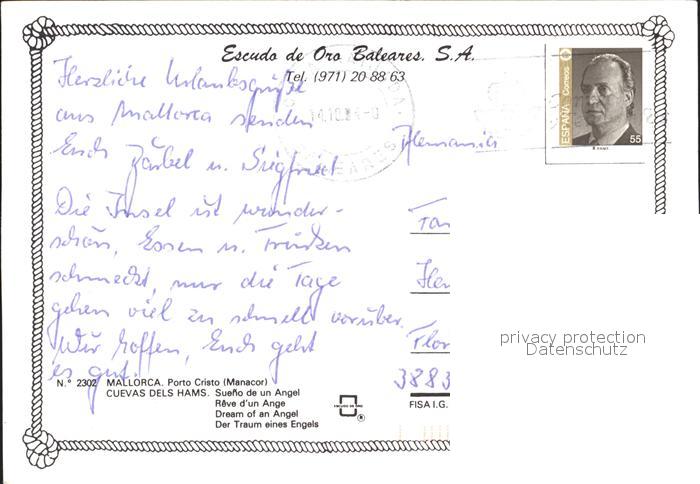 Escudo de Oro Baleares, S.A.
Tel. (971) 20 88 63
Herzliche Urlaubsgrüße
aus Mallorca senden
Euch Bärbel u. Siegfried
Die Insel ist wunder-
schön, Essen u. Trinken
schmeckt, nur die Tage
gehen viel zu schnell vorüber.
Wir hoffen, Euch geht
es gut.
Alemania
Fam
Flor
3883
ESPAÑA Correos
55
N.º 2302 MALLORCA. Porto Cristo (Manacor)
CUEVAS DELS HAMS. Sueño de un Angel
Rêve d'un Ange
Dream of an Angel
Der Traum eines Engels
ESCUDO DE ORO
®
FISA I.G.
privacy protection
Datenschutz